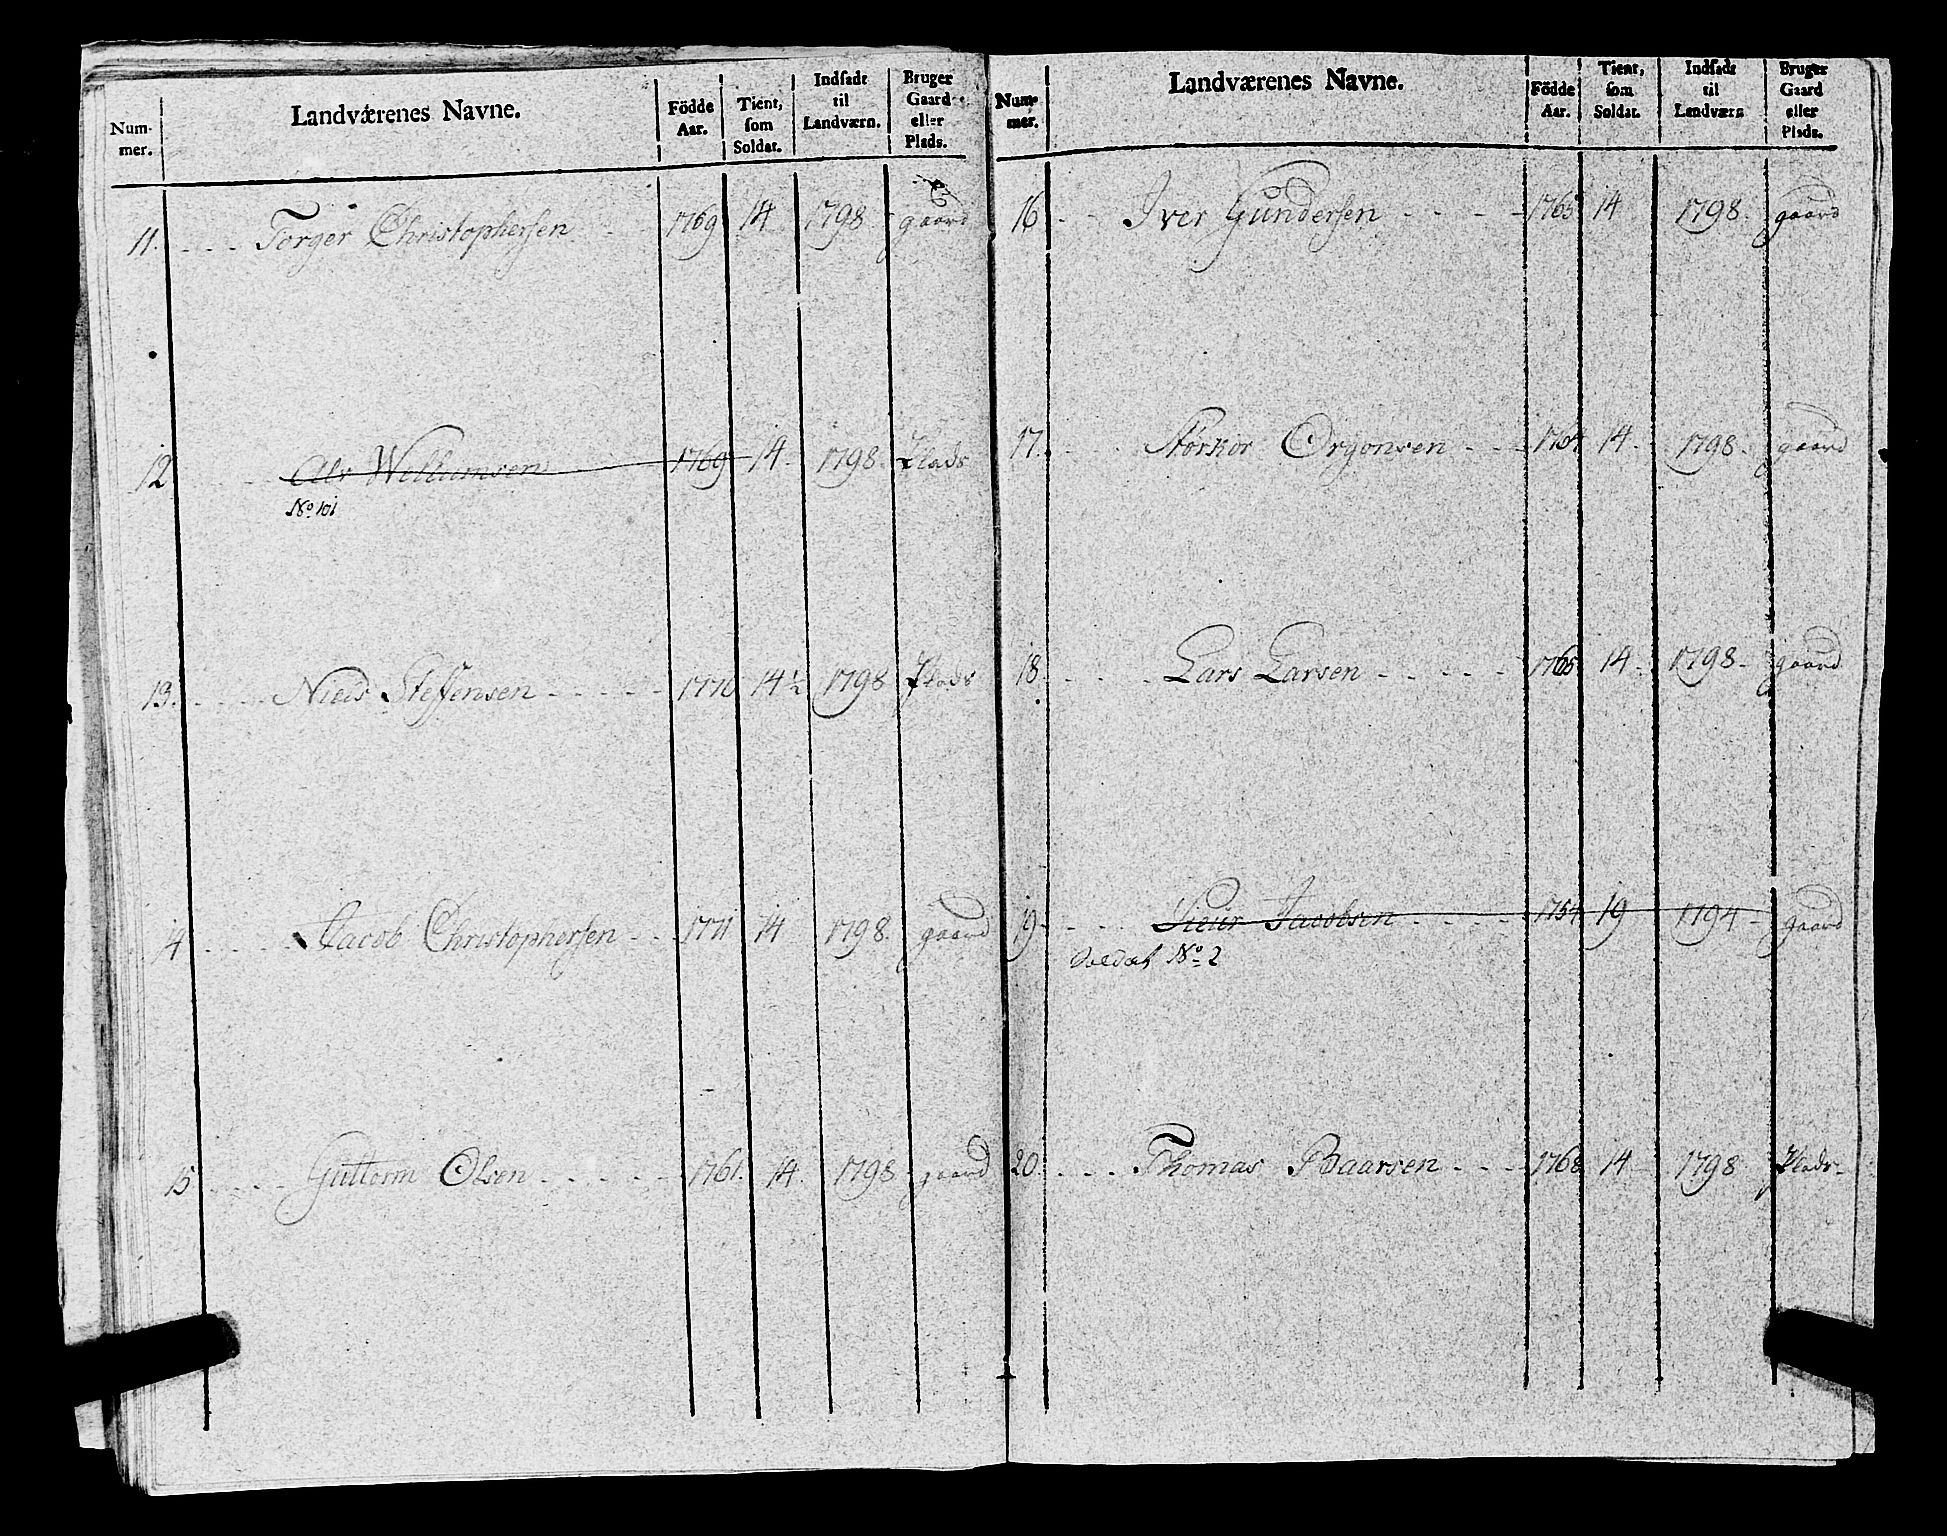 Num-
mer.
Landværenes Navne.
Födde
Aar.
Tient,
som
Soldat.
Indsadt
til
Landværn.
Bruger
Gaard
eller
Plads.
11. Torger Christophersen 1769 14 1798 gaard
12 Alv Wellumsen 1769 14 1798 Plads
No 101
13. Niels Steffensen 1770 14½ 1798 Plads
14 Jacob Christophersen 1771 14 1798 gaard
15 Guttorm Olsen 1761 14 1798 gaard
Num-
mer.
Landværenes Navne.
Födde
Aar.
Tient,
som
Soldat.
Indsadt
til
Landværn
Bruger
Gaard
eller
Plads.
16 Iver Gundersen 1765 14 1798 gaard
17. Størkor Orgonsen 1764 14 1798 gaard
18. Lars Larsen 1765 14 1798 gaard
19 Jacobsen 1754 19 1794 gaard
Soldat No 2
20. Thomas Baarsen 1768 14 1798 Plads